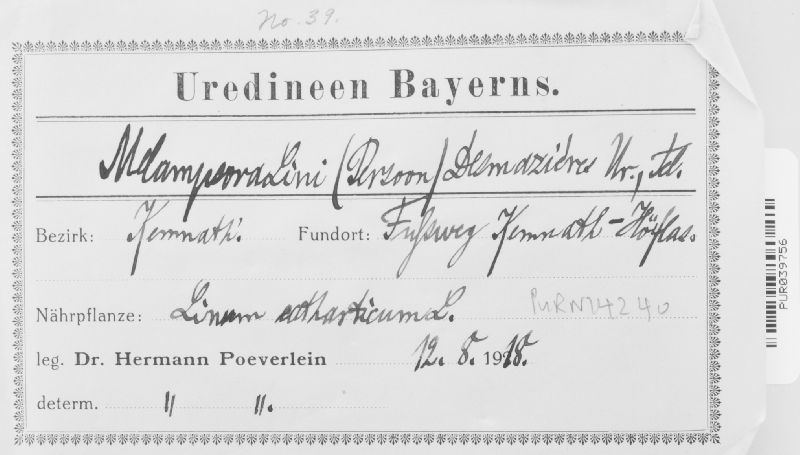 No. 39.
Uredineen Bayerns.
Melampsora Lini (Persoon) Desmazières Ur., Tel.
Bezirk: Kemnath. Fundort: Fußweg Kemnath-Höflas.
Nährpflanze: Linum catharticum L. PURN14240
leg. Dr. Hermann Poeverlein 12. 8. 1918.
determ. " ".
PUR039756